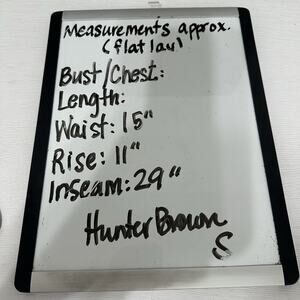 Measurements approx.
(flat lay)
Bust/Chest:
Length:
Waist: 15"
Rise: 11"
Inseam: 29"
Hunter Brown
S